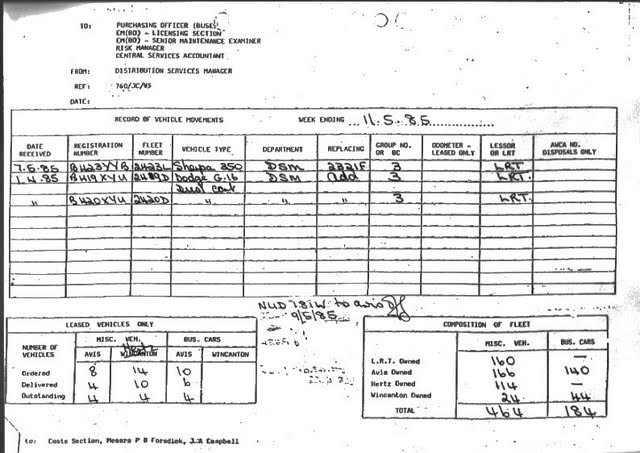 TO: PURCHASING OFFICER (BUSES)
EM(BO) - LICENSING SECTION
EM(BO) - SENIOR MAINTENANCE EXAMINER
RISK MANAGER
CENTRAL SERVICES ACCOUNTANT
FROM: DISTRIBUTION SERVICES MANAGER
REF: 760/JC/VS
DATE:
RECORD OF VEHICLE MOVEMENTS WEEK ENDING 11.5.85
DATE RECEIVED REGISTRATION NUMBER FLEET NUMBER VEHICLE TYPE DEPARTMENT REPLACING GROUP NO. OR BC ODOMETER - LEASED ONLY LESSOR OR LRT AWCA NO. DISPOSALS ONLY
7.5.85 B423YYB 2423L Sherpa 350 DSM 2321F 3 LRT
1.4.85 B419XYU 2419D Dodge G.16 DSM add 3 LRT
Dust cart
" B420XYU 2420D " " " 3 LRT.
NUD 781W to avis
9/5/85
LEASED VEHICLES ONLY
NUMBER OF VEHICLES MISC. VEH. BUS. CARS
Hertz
AVIS WINCANTON AVIS WINCANTON
Ordered 8 14 10
Delivered 4 10 6
Outstanding 4 4 4
COMPOSITION OF FLEET
MISC. VEH. BUS. CARS
L.R.T. Owned 160 —
Avis Owned 166 140
Hertz Owned 114 —
Wincanton Owned 24 44
TOTAL 464 184
to: Costs Section, Messrs P B Forsdick, J A Campbell